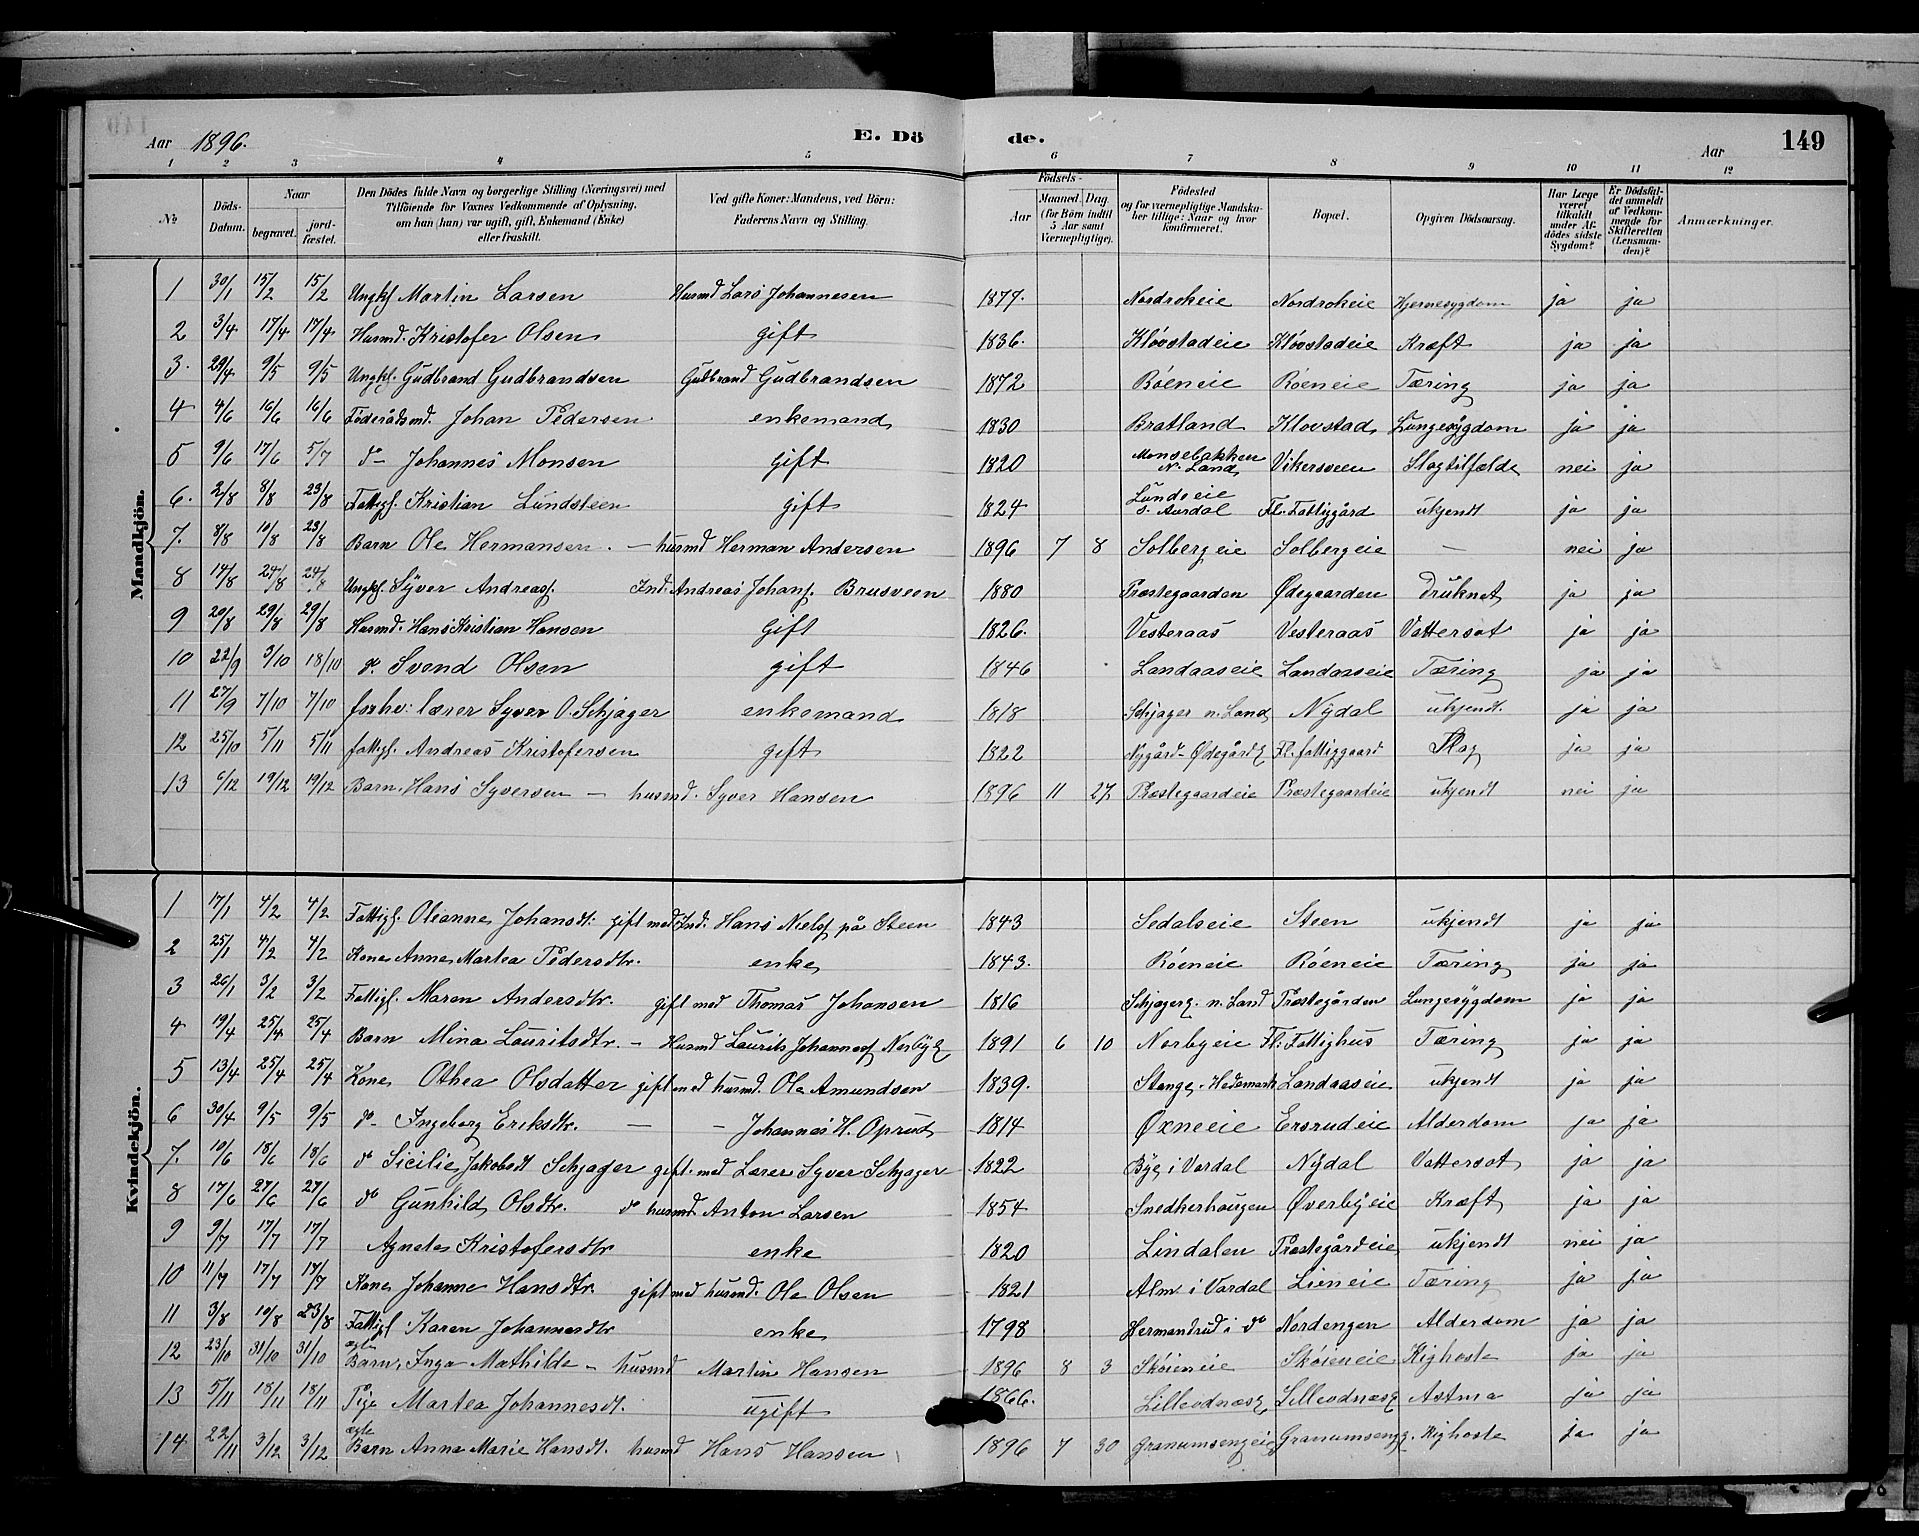 Aar 1896. E. Döde. Aar 149
1 2 3 4 5 6 7 8 9 10 11 12
№ Döds-Datum. Naar begravet. jordfæstet. Den Dödes fulde Navn og borgerlige Stilling (Næringsvei) med Tilföiende for Voxnes Vedkommende af Oplysning, om han (hun) var ugift, gift, Enkemand (Enke) eller fraskilt. Ved gifte Koner: Mandens, ved Börn: Faderens Navn og Stilling. Födsels- Aar Maaned. Dag. (for Börn indtil 5 Aar samt Værnepligtige). Födested og for værnepligtige Mandskaber tillige: Naar og hvor konfirmeret. Bopæl. Opgiven Dödsaarsag. Har Læge været tilkaldt under Afdödes sidste Sygdom? Er Dödsfaldet anmeldt af Vedkommende for Skifteretten (Lensmanden)? Anmærkninger.
Mandkjön.
1 30/1 15/2 15/2 Ungkl. Martin Larsen Husmd Lars Johannesen 1877. Nordrokeie Nordrokeie Hjernesygdom ja ja
2 3/4 17/4 17/4 Husmd. Kristofer Olsen gift 1836. Kløvstadeie Kløvstadeie Kræft ja ja
3. 29/4 9/5 9/5 Ungkl. Gudbrand Gudbrandsen Gudbrand Gudbrandsen 1872 Røeneie Røeneie Tæring ja ja
4 4/6 16/6 16/6 Føderådsmd. Johan Pedersen enkemand 1830 Bratland Klovstad Lungesygdom ja ja
5 9/6 17/6 5/7 do- Johannes Monsen gift 1820 Monsebakken N. Land Vikersveen Slagtilfælde nei ja
6. 2/8 8/8 23/8 Fattigl. Kristian Lundsteen gift 1824 Lundseie S. Aurdal Fl. Fattiggård ukjendt ja ja
7. 8/8 10/8 23/8 Barn Ole Hermansen. - husmd Herman Andersen 1896 7 8 Solbergeie Solbergeie - nei ja
8 14/8 24/8 24/8 Ungkl. Syver Andreas. Ind. Andreas Johans. Brusveen 1880 Præstegaarden Ødegaarden Druknet ja ja
9 20/8 29/8 29/8 Husmd. Hans Kristian Hansen Gift 1826. Vesteraas Vesteraas Vattersot ja ja
10 22/9 3/10 18/10 do. Svend Olsen gift 1846 Landaaseie Landaaseie Tæring ja ja
11 27/9 7/10 7/10 forhv: lærer Syver O. Schjager enkemand 1818 Schjager n. Land Nydal ukjendt. ja ja
12 25/10 5/11 5/11 fattigl. Andreas Kristofersen gift 1822 Nygård-Ødegård Fl. fattiggaard Slag ja ja
13 6/12 19/12 19/12 Barn. Hans Syversen - husmd. Syver Hansen 1896 11 27 Præstegaardeie Præstegaardeie ukjendt nei ja
Kvindekjön.
1 17/1 4/2 4/2 Fattigl. Oleanne Johansdt: gift med Ind. Hans Niels på Steen 1843 Sedalseie Steen ukjendt ja ja
2 25/1 4/2 4/2 Kone Anne Martea Pedersdtr. enke 1843. Røeneie Røeneie Tæring ja ja
3 26/1 3/2 3/2 Fattigl. Maren Andersdtr. gift med Thomas Johansen 1816 Schjager n. Land Præstegården Lungesygdom ja ja
4 19/4 25/4 25/4 Barn Mina Lauritsdtr. - Husmd Laurits Johannes 1891 6 10 Norbyeie Fl. Fattighus Tæring ja ja
5 13/4 25/4 25/4 Kone Othea Olsdatter gift med husmd. Ole Amundsen 1839. Stange, Hedemark Landaaseie ukjendt ja ja
6 30/4 9/5 9/5 do- Ingeborg Eriksdtr. - - Johannes H. Oprud 1814 Øxneeie Ersrudeie Alderdom ja ja
7. 10/6 18/6 18/6 do Sicilie Jakobsdt Schjager gift. med Lærer Syver Schjager 1822 Bye i Vardal Nydal Vattersot ja ja
8 17/6 27/6 27/6 do Gunhild Olsdtr. do husmd. Anton Larsen 1854 Snedkerhaugen Øverbyeie Kræft ja ja
9 9/7 17/7 17/7 Agnete Kristofersdtr enke 1820 Lindalen Præstegårdeie ukjendt nei ja
10 11/7 17/7 17/7 Kone Johanne Hansdtr. gift med husmd. Ole Olsen 1821 Alm i Vardal Lieneie Tæring ja ja
11 3/8 10/8 23/8 Fattigl Karen Johannesdtr enke 1798 Hermandrud i do Nordengen Alderdom ja ja
12 23/10 31/10 31/10 ægte Barn, Inga Mathilde - husmd Martin Hansen 1896 8 3 Skøieneie Skøieneie Kighoste ja ja
13 5/11 18/11 18/11 Pige Martea Johannesdt. ugift 1866. Lilleodnæs Lilleodnæs Astma ja ja
14 22/11 3/12 3/12 ægte Barn Anne Marie Hansdt. husmd Hans Hansen 1896 7 30 Granumsengeie Granumseng. Kighoste ja ja